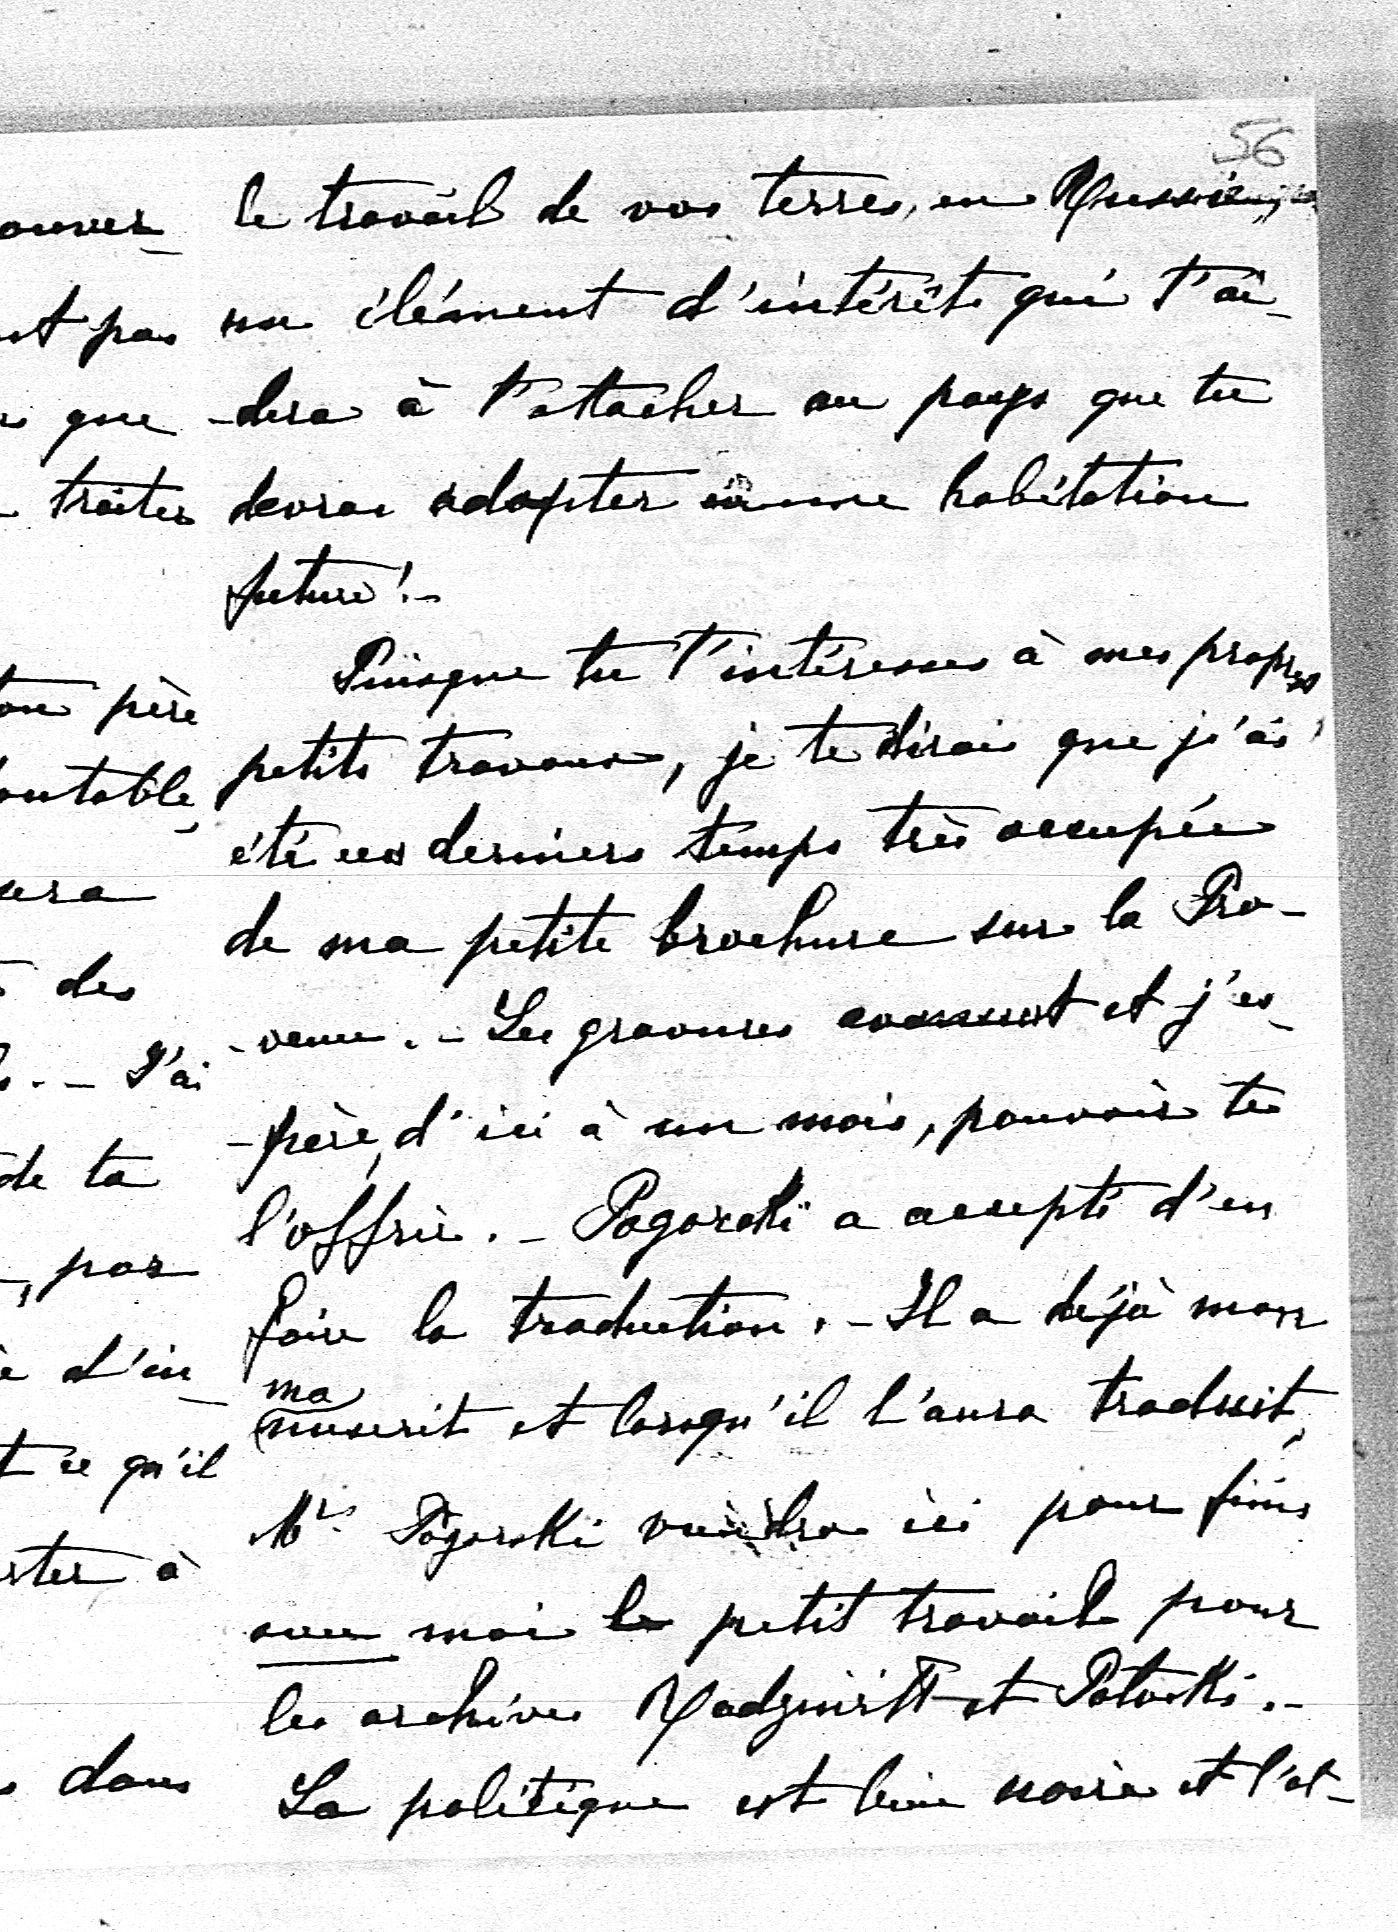 56
ouver_
st pas
que
traiter
ton père
outable,
sera
des
. _ J'ai
de ta
, par
d'in_
t ce qu'il
ster à
dans
le travail de vos terres, en Russie,
un élément d'intérêt qui t'ai_
_dera à t'attacher au pays que tu
devras adopter comme habitation
future! _
Puisque tu t'intéresses à mes propres
petits travaux, je te dirais que j'ai
été ces derniers temps très occupée
de ma petite brochure sur la Pro_
_vence. _ Les gravures avancent et j'es_
_père, d'ici à un mois, pouvoir te
l'offrir. _ Pogorski a accepté d'en
faire la traduction. _ Il a déjà mon
ma
nuscrit et lorsqu'il l'aura traduit,
Mr. Pogorski viendra ici pour finir
avec moi le petit travail pour
les archives Radziwiłł et Potocki. _
La politique est bien noire et l'at_